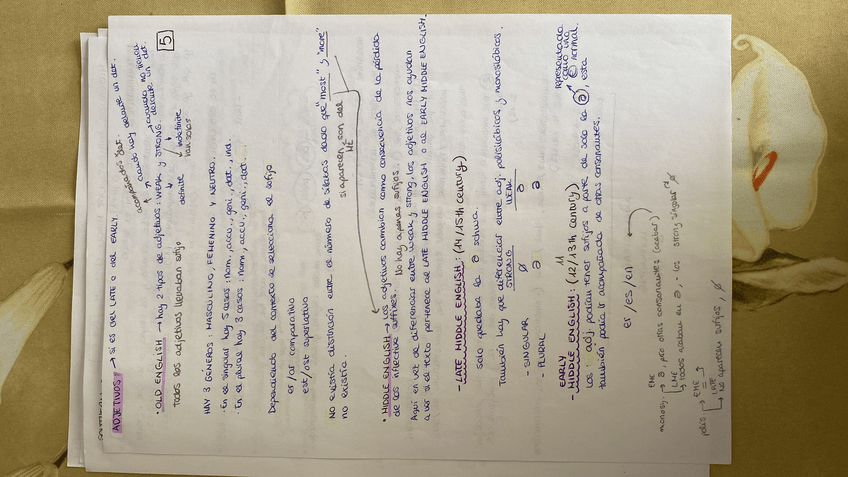 5
ADJETIVOS: → si es del LATE o del EARLY.
acompañados det.
cuando hay delante un det.
cuando no lleva delante un det.
• OLD ENGLISH → hay 2 tipos de adjetivos: WEAK y STRONG
definite
indefinite
van solos
Todos los adjetivos llevaban sufijo
HAY 3 GÉNEROS: MASCULINO, FEMENINO Y NEUTRO.
· En el singular hay 5 casos: nom., accu., geni., dat., ins.
· En el plural hay 3 casos: nom., accu., geni., dat...
Dependiendo del contexto se selecciona el sufijo
er/ar comparativo
est/ost superlativo
No existía distinción entre el número de sílabas dado que "most" y "more"
no existía.
si aparecen son del
ME
• MIDDLE ENGLISH → Los adjetivos cambian como consecuencia de la pérdida
de los inflective suffixes. No hay apenas sufijos.
Aquí en vez de diferencias entre weak y strong, los adjetivos nos ayudan
a ver si el texto pertenece al LATE MIDDLE ENGLISH o al EARLY MIDDLE ENGLISH.
- LATE MIDDLE ENGLISH: (14/15th century)
Solo quedaba la ə schwa.
También hay que diferenciar entre adj. polisilábicos y monosilábicos.
STRONG WEAK
- SINGULAR ø ə
- PLURAL ə ə
EARLY 11
- MIDDLE ENGLISH: (12/13th century)
representada como una e normal.
Los adj podían tener sufijos a parte de solo la ə, esta
también podía ir acompañada de otras consonantes.
er/es/en
EME
monos → ə, pero otras consonantes (acabar)
LME
→ todos acaban en ə, - los strong singular ø
polis → EME
LATE
→ No aparecen sufijos, ø